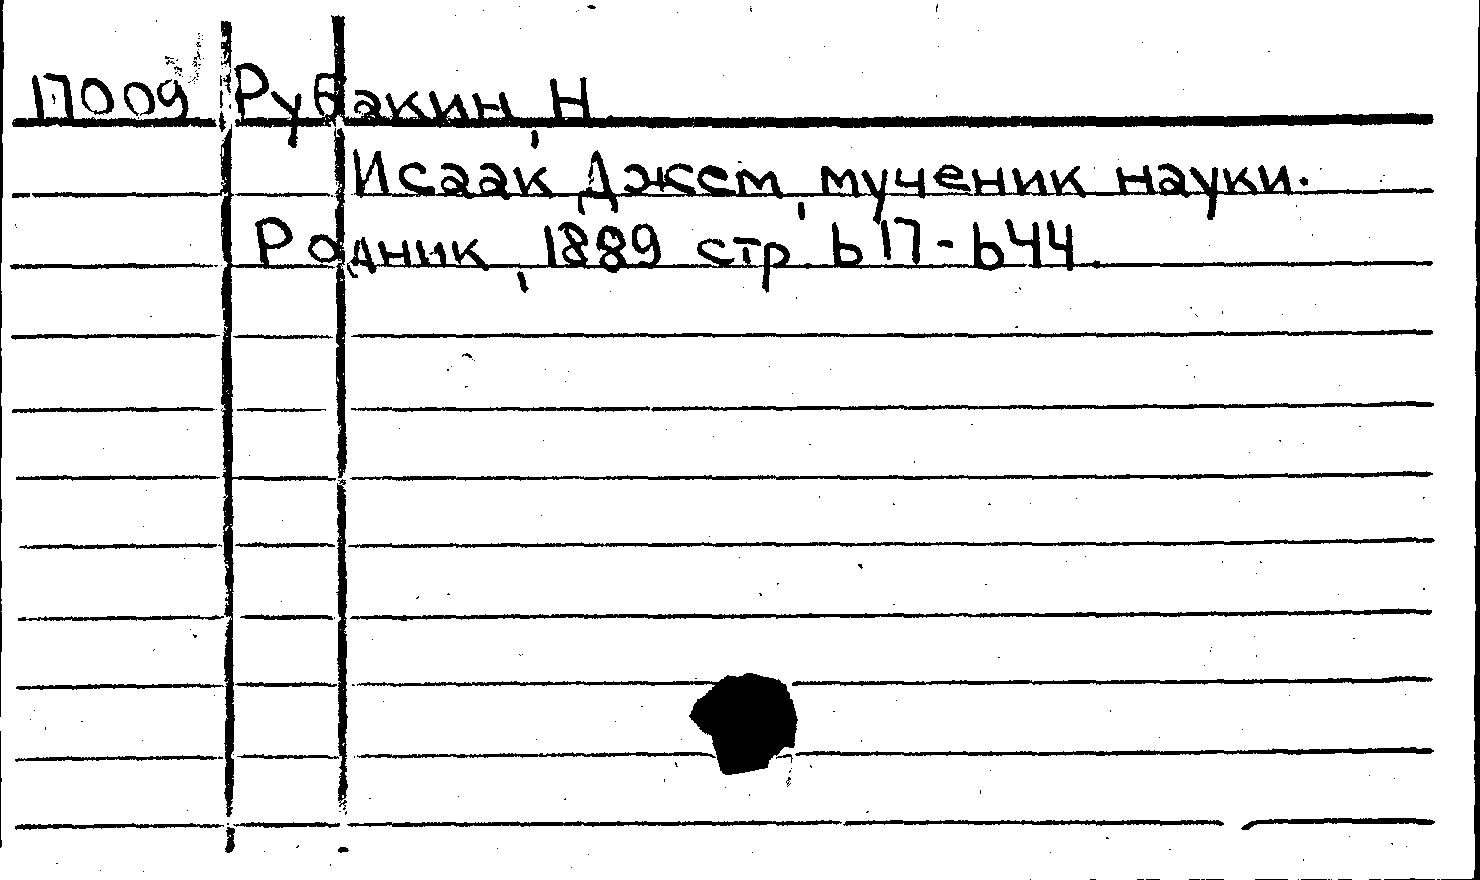 17009 Рубакин, Н.
Исаак Джем, мученик науки.
Родник, 1889 стр. 617-644.